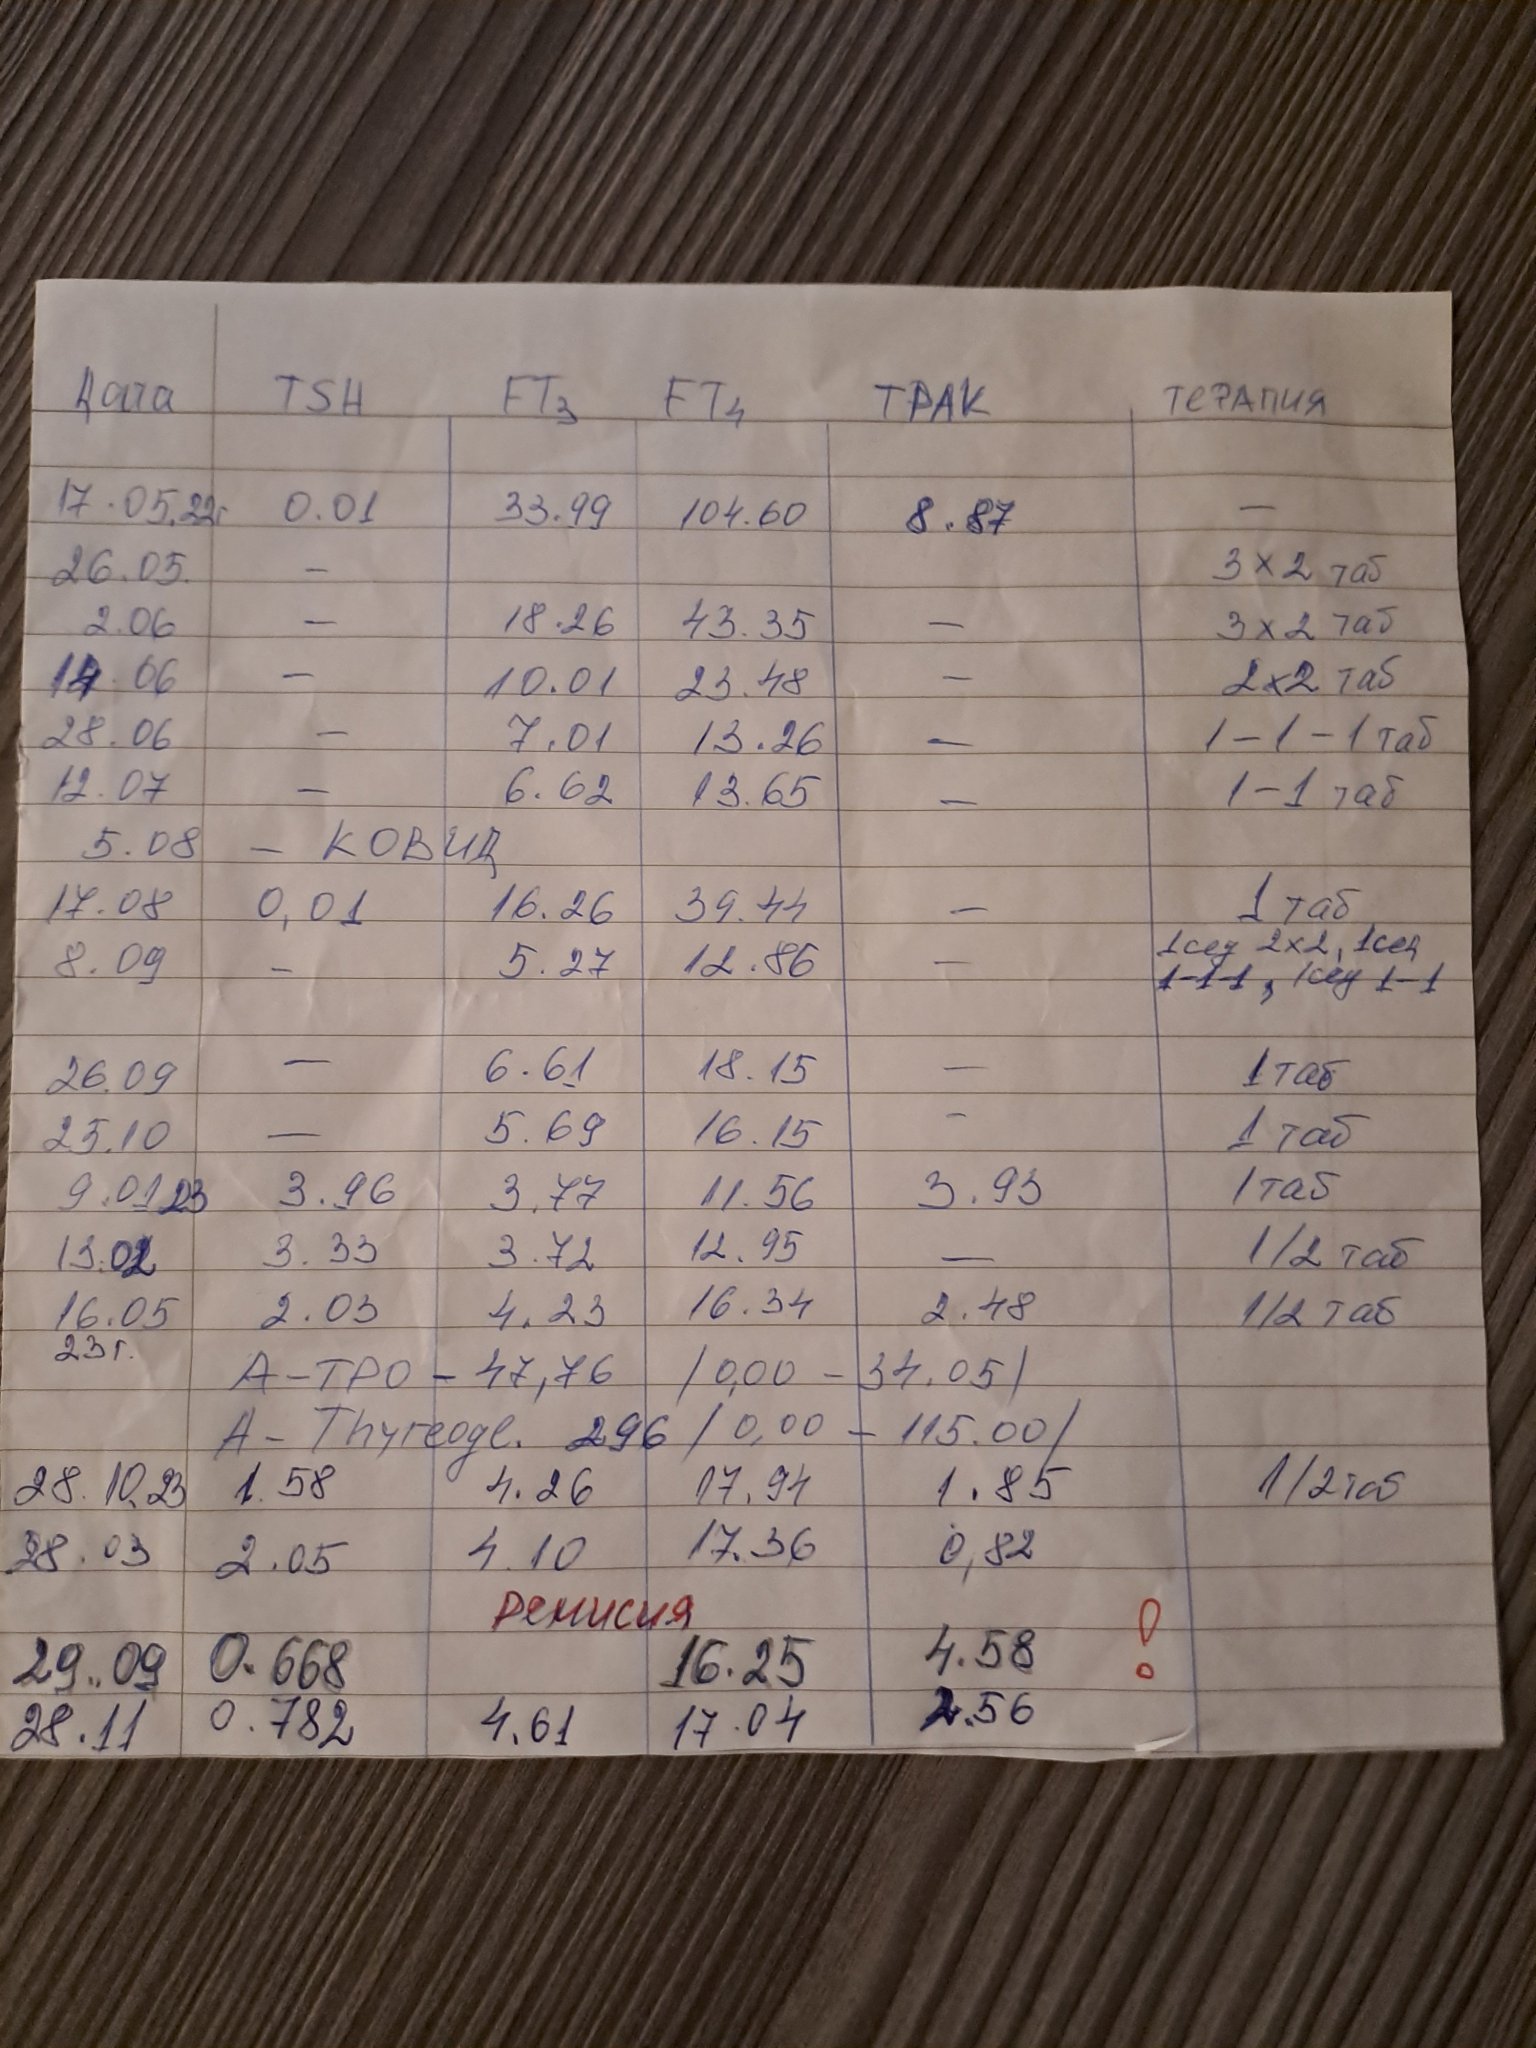 Дата TSH FT3 FT4 ТРАК ТЕРАПИЯ
17.05.22г 0.01 33.99 104.60 8.87 —
26.05. — 3x2 таб
2.06 — 18.26 43.35 — 3x2 таб
14.06 — 10.01 23.48 — 2x2 таб
28.06 — 7.01 13.26 — 1-1-1 таб
12.07 — 6.62 13.65 — 1-1 таб
5.08 — КОВИД
17.08 0,01 16.26 39.44 — 1 таб
8.09 — 5.27 12.86 — 1сед 2x2, 1сед
1-1-1, 1сед 1-1
26.09 — 6.61 18.15 — 1 таб
25.10 — 5.69 16.15 - 1 таб
9.01.23 3.96 3.77 11.56 3.93 1 таб
13.02 3.33 3.72 12.95 — 1/2 таб
16.05 2.03 4.23 16.34 2.48 1/2 таб
23г.
А-ТРО - 47,76 /0,00 - 34.05/
A- Thyreogl. 296 /0,00 - 115.00/
28.10.23 1.58 4.26 17.94 1.85 1/2 таб
28.03 2.05 4.10 17.36 0,82
Ремисия
29.09 0.668 16.25 4.58 !
28.11 0.782 4.61 17.04 2.56